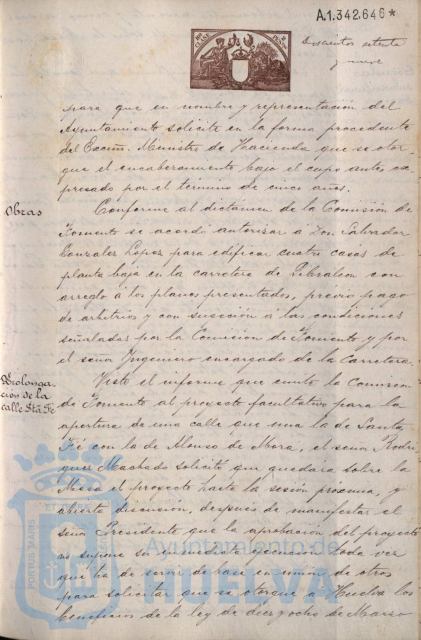 A.1.342.646*
Doscientos setenta
y nueve
para que en nombre y representación del
Ayuntamiento solicite en la forma procedente
del Excmo. Ministro de Hacienda que se otor-
gue el encabezamiento bajo el cupo antes ex-
presado por el término de cinco años.
Obras
Conforme al dictámen de la Comisión de
Fomento se acordó autorizar a Don Salvador
Gonzalez Lopez para edificar cuatro casas de
planta baja en la carretera de Gibraleon con
arreglo á los planos presentados, previo pago
de arbitrios y con sujeción á las condiciones
señaladas por la Comisión de Fomento y por
el señor Ingeniero encargado de la Carretera.
Prolonga-
ción de la
calle Sta. Fé
Visto el informe que emite la Comision
de Fomento al proyecto facultativo para la
apertura de una calle que una la de Santa
Fé con la de Alonso de Mora, el señor Rodri-
guez Machado solicitó que quedara sobre la
Mesa el proyecto hasta la sesión próxima, y
abierta discusión, despues de manifestar el
señor Presidente que la aprobación del proyecto
no supone su inmediata ejecución toda vez
que ha de servir de base en unión de otros
para solicitar que se otorgue á Huelva los
beneficios de la ley de diez y ocho de Marzo
PORTUS MARIS
Ayuntamiento de
HUELVA